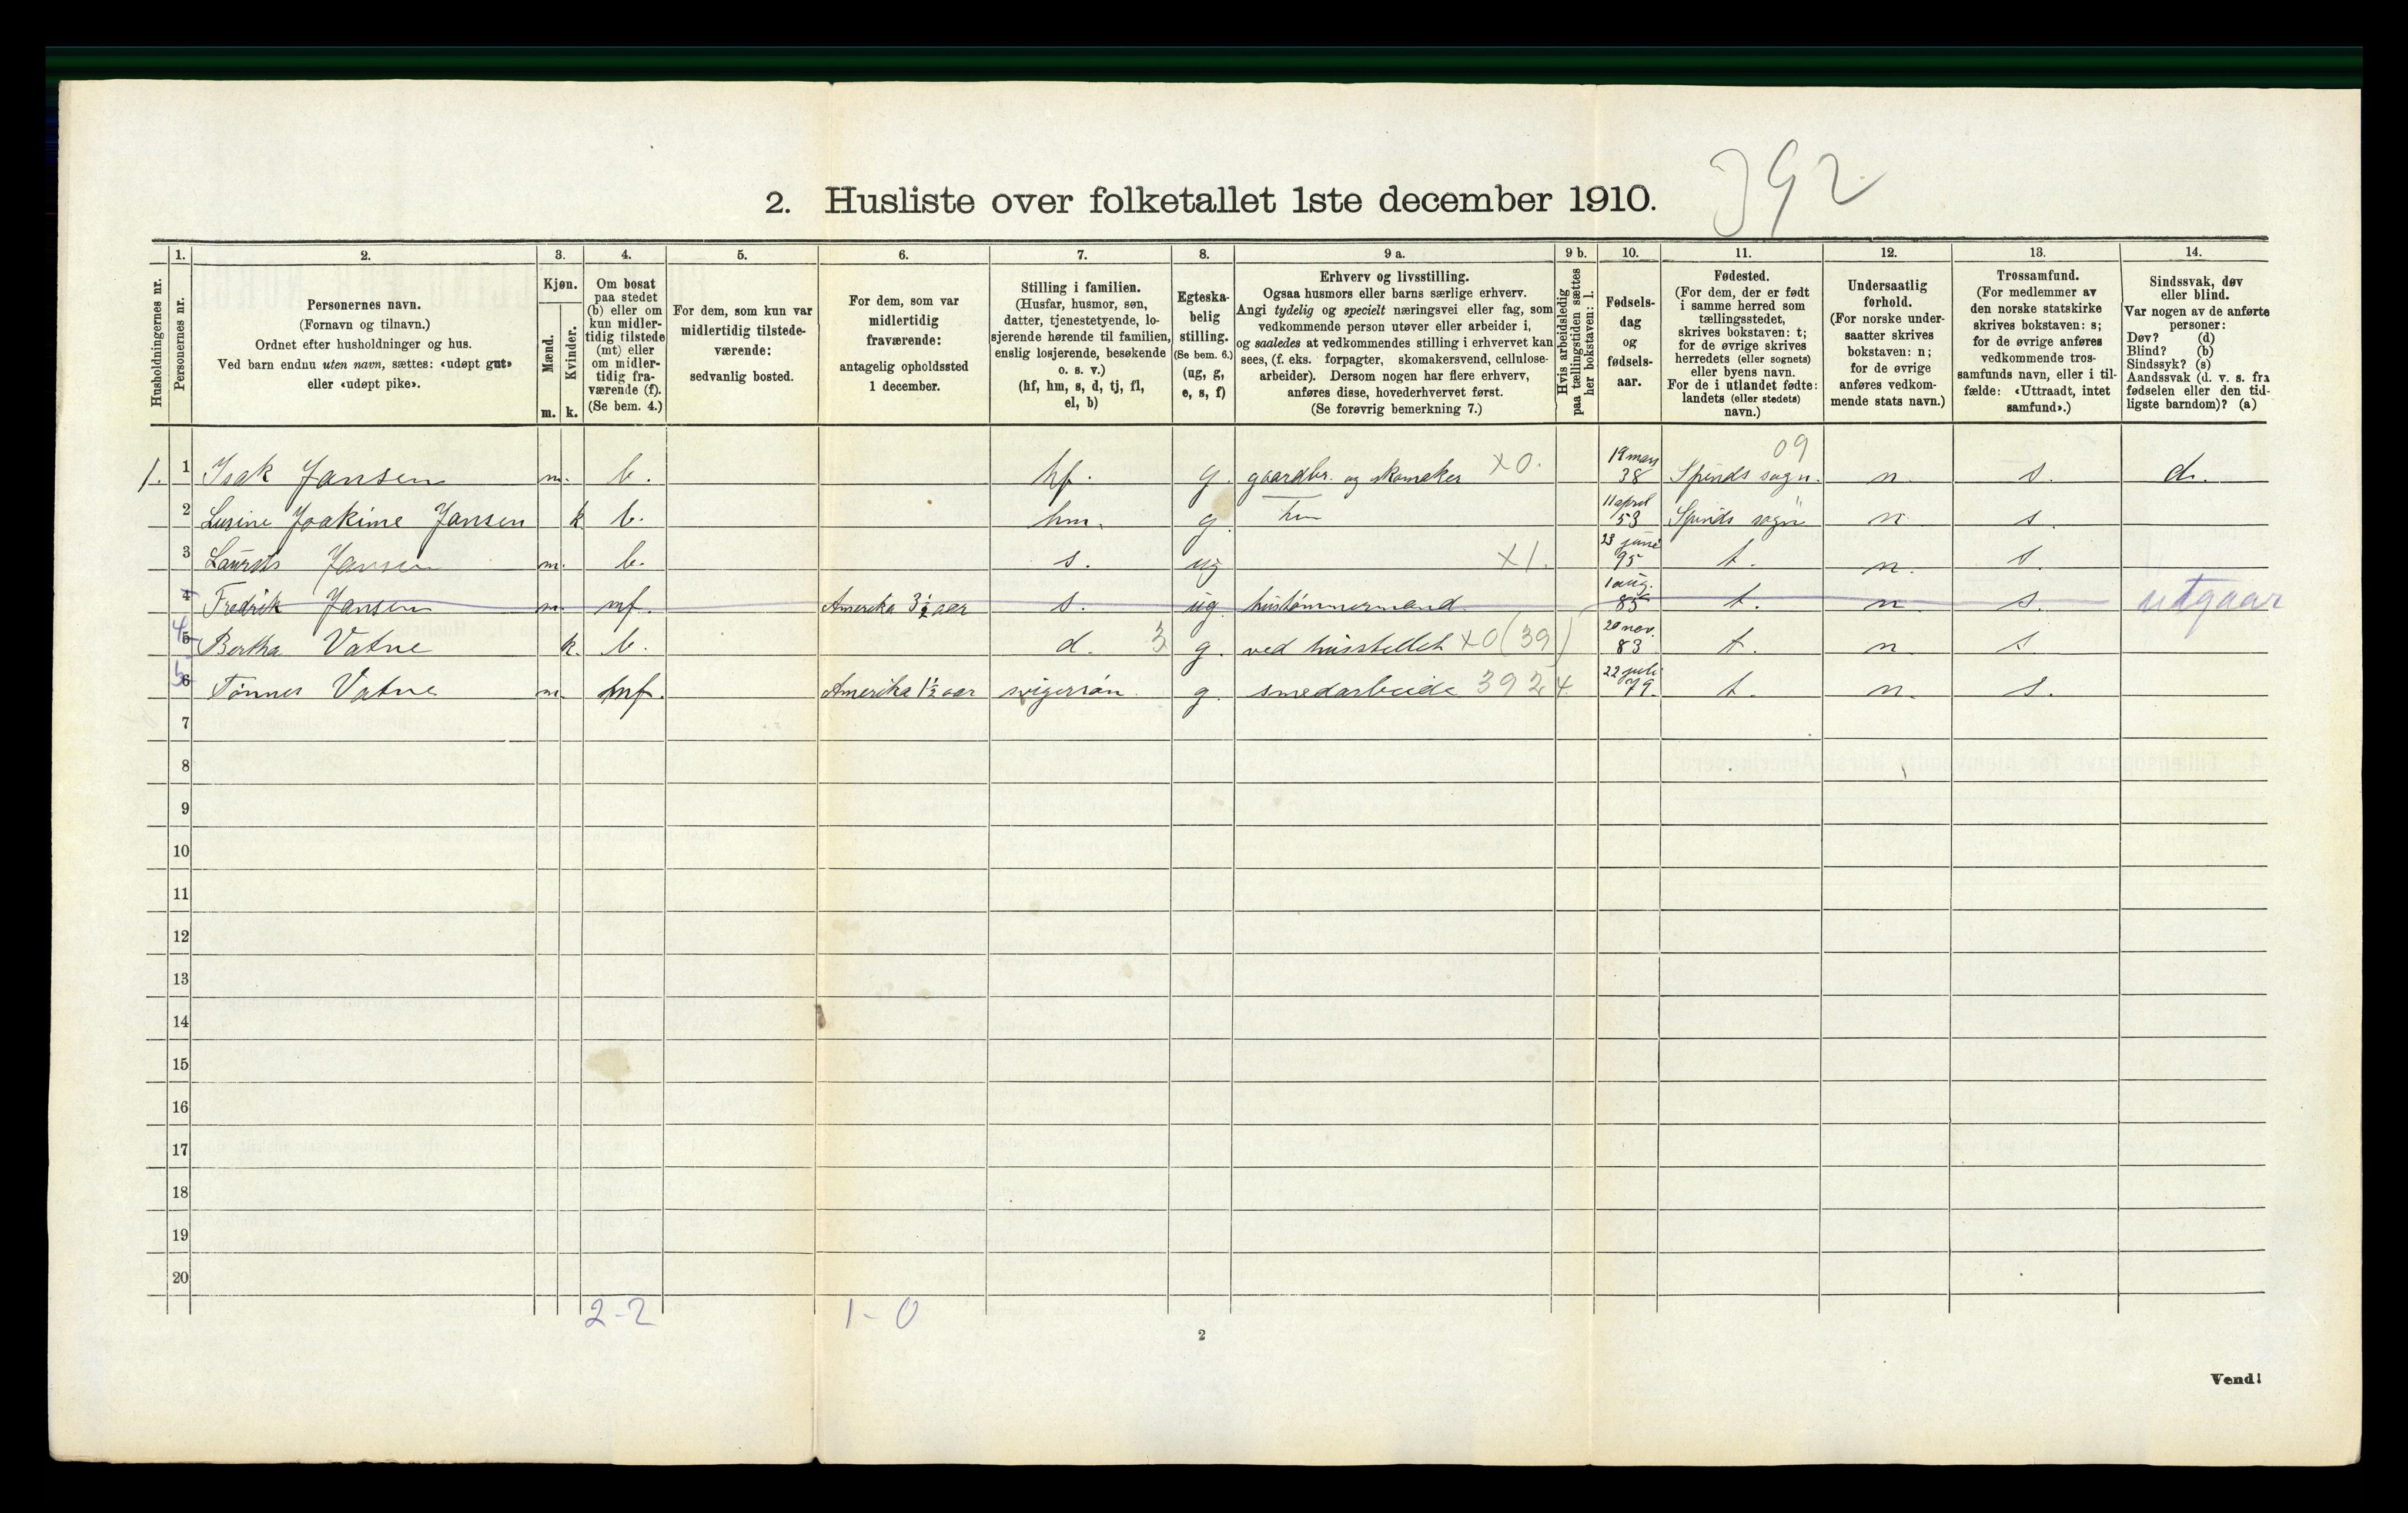 392
2. Husliste over folketallet 1ste december 1910.
Husholdningernes nr.
1.
Personernes nr.
2.
Personernes navn.
(Fornavn og tilnavn.)
Ordnet efter husholdninger og hus.
Ved barn endnu uten navn, sættes: «udøpt gut»
eller «udøpt pike».
3.
Kjøn.
Mænd.
Kvinder.
m.
k.
4.
Om bosat
paa stedet
(b) eller om
kun midler-
tidig tilstede
(mt) eller
om midler-
tidig fra-
værende (f).
(Se bem. 4.)
5.
For dem, som kun var
midlertidig tilstede-
værende:
sedvanlig bosted.
6.
For dem, som var
midlertidig
fraværende:
antagelig opholdssted
1 december.
7.
Stilling i familien.
(Husfar, husmor, søn,
datter, tjenestetyende, lo-
sjerende hørende til familien,
enslig losjerende, besøkende
o. s. v.)
(hf, hm, s, d, tj, fl,
el, b)
8.
Egteska-
belig
stilling.
(Se bem. 6.)
(ug, g,
e, s, f)
9 a.
Erhverv og livsstilling.
Ogsaa husmors eller barns særlige erhverv.
Angi tydelig og specielt næringsvei eller fag, som
vedkommende person utøver eller arbeider i,
og saaledes at vedkommendes stilling i erhvervet kan
sees, (f. eks. forpagter, skomakersvend, cellulose-
arbeider). Dersom nogen har flere erhverv,
anføres disse, hovederhvervet først.
(Se forøvrig bemerkning 7.)
9 b.
Hvis arbeidsledig
paa tællingstiden sættes
her bokstaven: l.
10.
Fødsels-
dag
og
fødsels-
aar.
11.
Fødested.
(For dem, der er født
i samme herred som
tællingsstedet,
skrives bokstaven: t;
for de øvrige skrives
herredets (eller sognets)
eller byens navn.
For de i utlandet fødte:
landets (eller stedets)
navn.)
12.
Undersaatlig
forhold.
(For norske under-
saatter skrives
bokstaven: n;
for de øvrige
anføres vedkom-
mende stats navn.)
13.
Trossamfund.
(For medlemmer av
den norske statskirke
skrives bokstaven: s;
for de øvrige anføres
vedkommende tros-
samfunds navn, eller i til-
fælde: «Uttraadt, intet
samfund».)
14.
Sindssvak, døv
eller blind.
Var nogen av de anførte
personer:
Døv? (d)
Blind? (b)
Sindssyk? (s)
Aandssvak (d. v. s. fra
fødselen eller den tid-
ligste barndom)? (a)
1. 1 Isak Jansen m. b. hf. g. gaardbr. og skomaker X0. 19 mars 38 09 Spinds sogn. n. s. d.
2 Lusine Joakime Jansen k b. hm. g. hm 11 april 53 Spinds sogn n. s.
3 Laurits Jansen m. b. s. ug X1. 23 juni 95 t. n. s.
4 Fredrik Jansen m. mf. Amerika 3½ aar s. ug. hustømmermand 1 aug. 85 t. n. s. utgaar
4 5 Bertha Vatne k. b. d. 3 g. ved husstellet X0 (39) 20 nov. 83 t. n. s.
5 6 Tønnes Vatne m. mf. Amerika 1½ aar svigersøn. g. smedarbeide 3924 22 juli 79. t. n. s.
7
8
9
10
11
12
13
14
15
16
17
18
19
20
2-2 1-0
2
Vend!